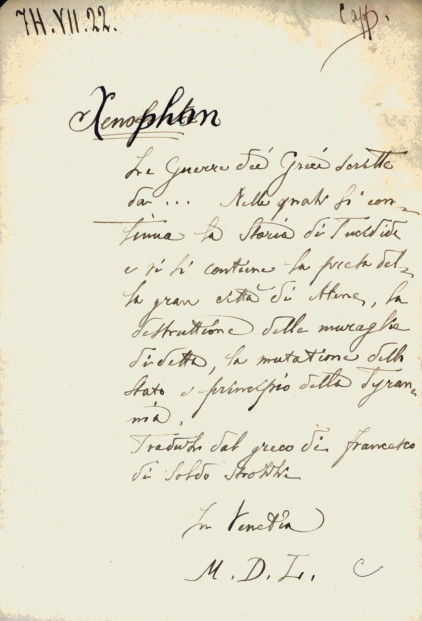 TH.VII.22.
Capp.
Xenophon
Le Guerre dei Greci scritte
da ... Nelle quali si con-
tinua la Storia di Tucidide
e vi si contiene la presa del-
la gran città di Atene, la
destruttione delle muraglie
di detta, la mutatione dello
Stato e principio della Tyran-
nia.
Tradutte dal greco di Francesco
di Soldo Strozzi
In Venetia
M. D. L.